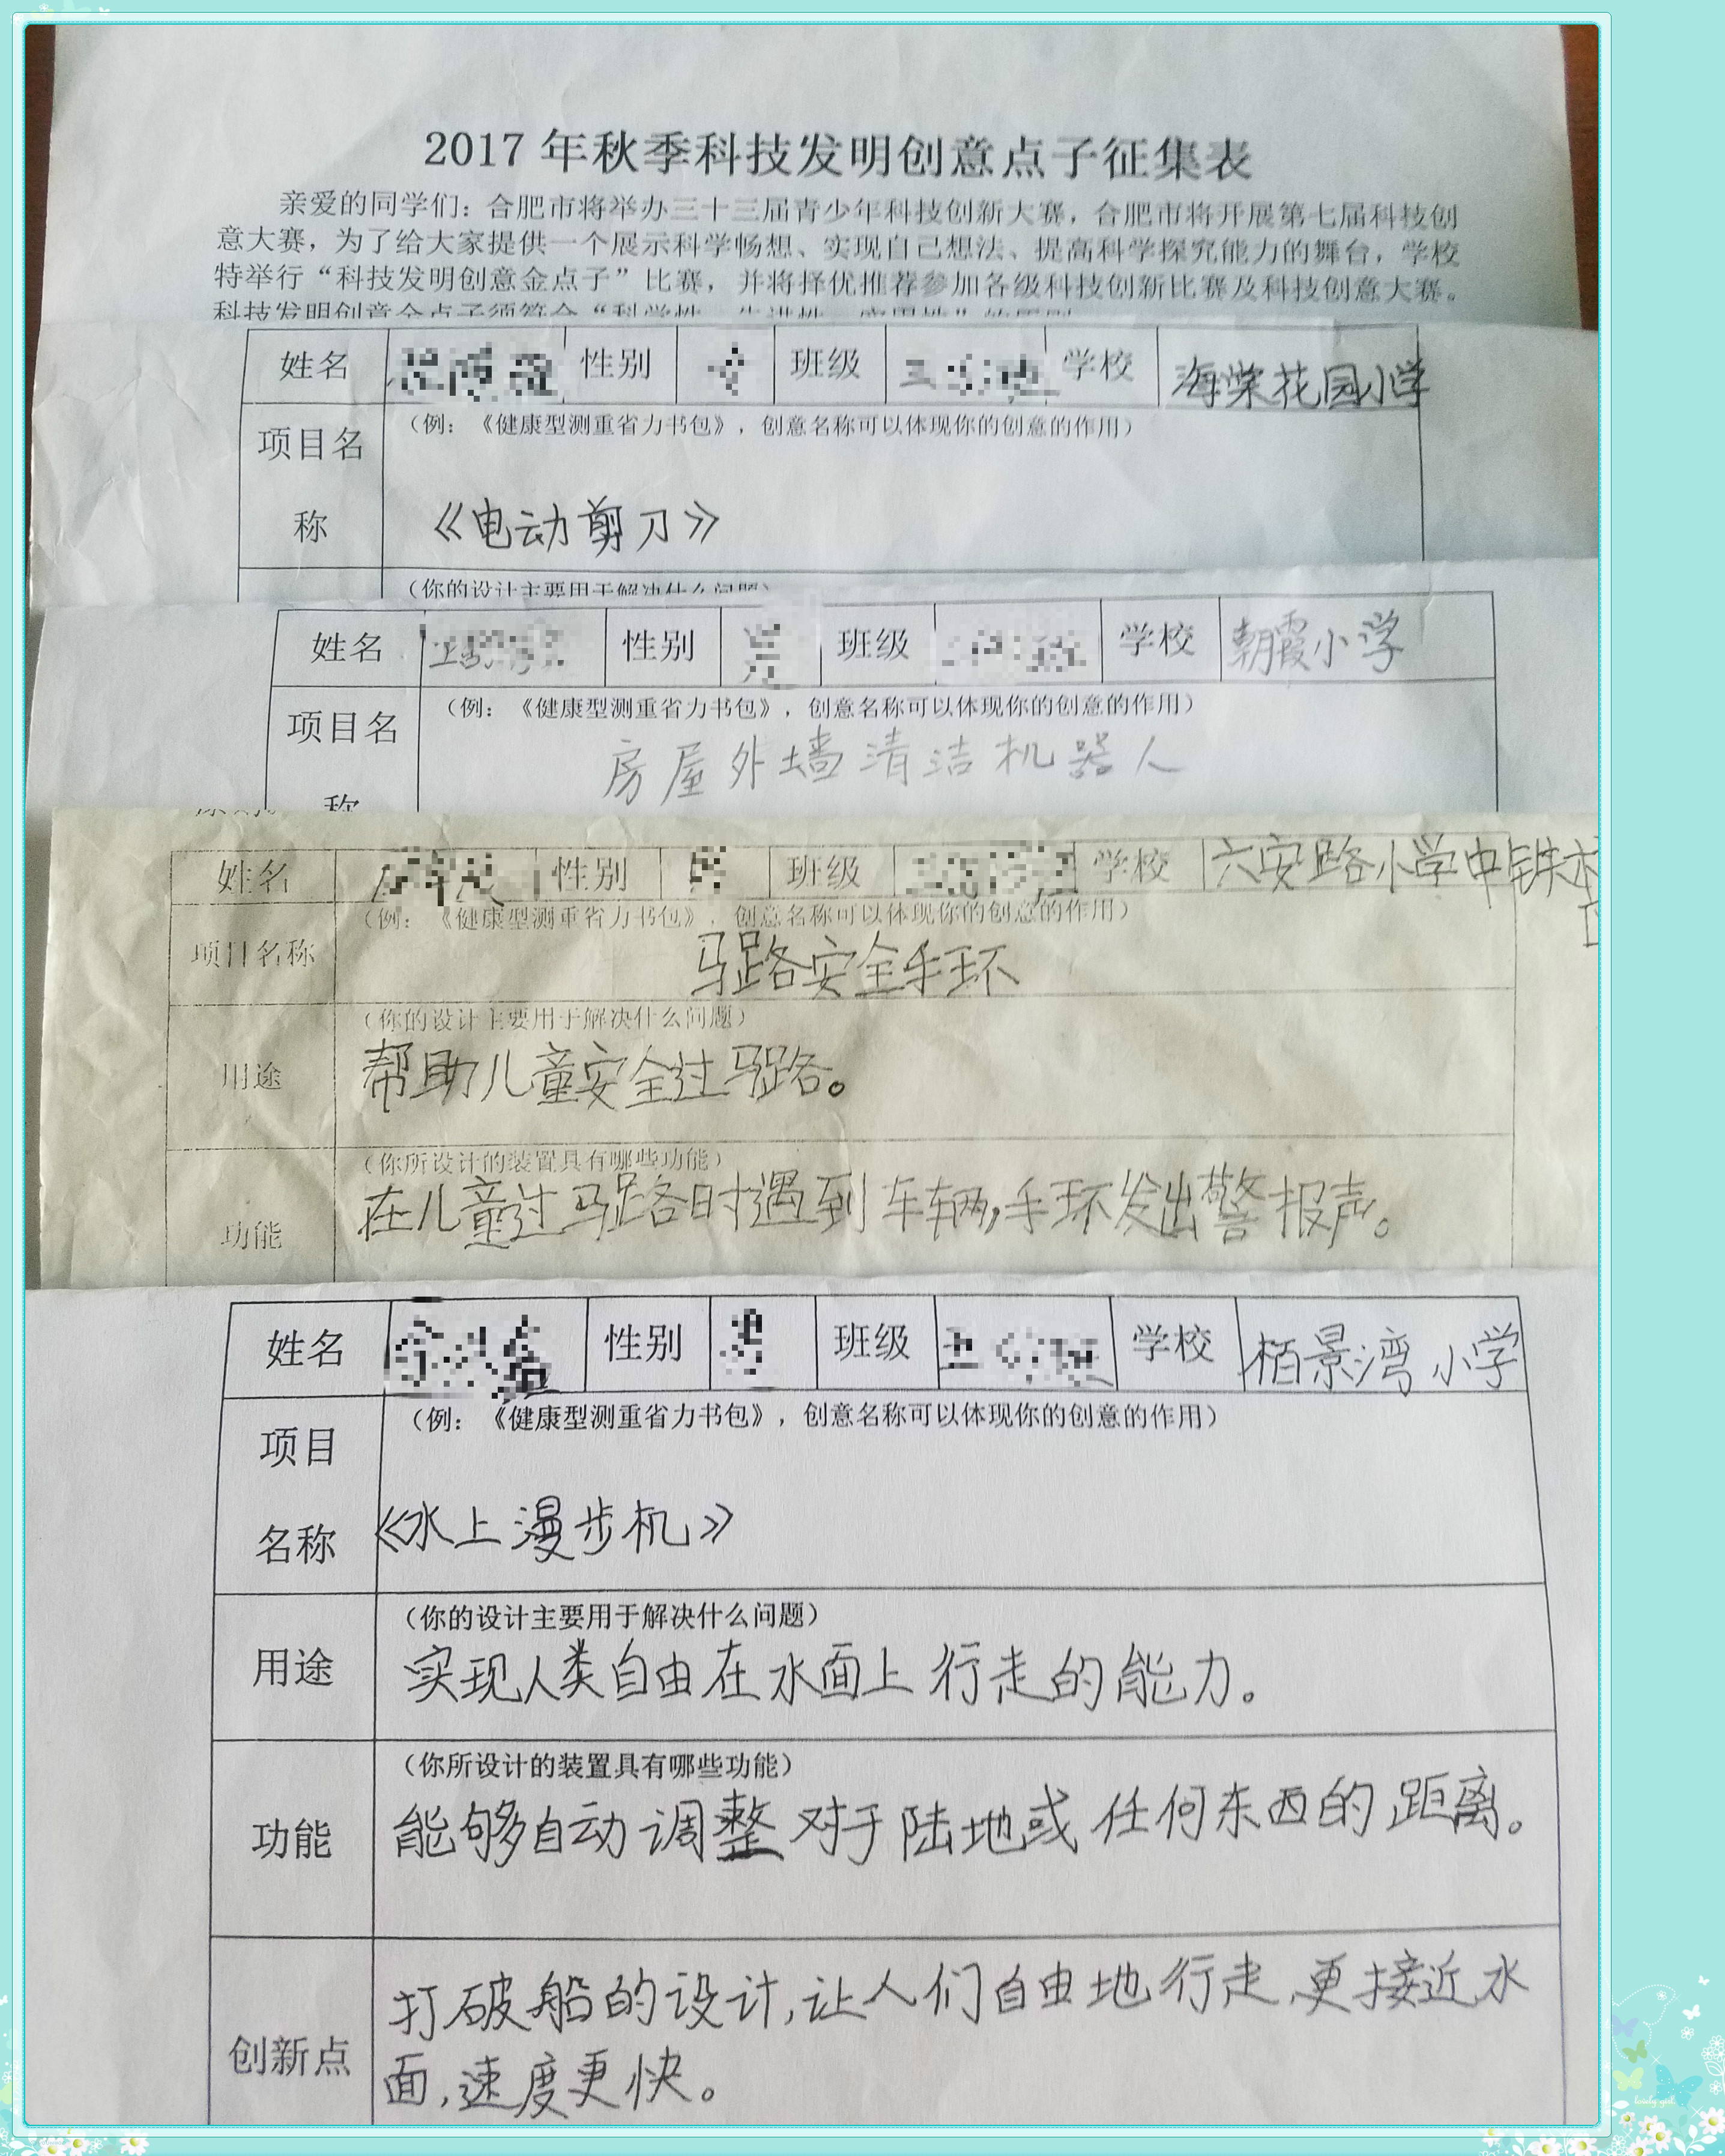 2017 年秋季科技发明创意点子征集表
亲爱的同学们：合肥市将举办三十三届青少年科技创新大赛，合肥市将开展第七届科技创
意大赛，为了给大家提供一个展示科学畅想、实现自己想法、提高科学探究能力的舞台，学校
特举行“科技发明创意金点子”比赛，并将择优推荐参加各级科技创新比赛及科技创意大赛。
科技发明创意金点子须符合“科学性
姓名 性别 班级 学校 海棠花园小学
（例：《健康型测重省力书包》，创意名称可以体现你的创意的作用）
项目名
称 《电动剪刀》
（你的设计主要用于解决什么问题）
姓名 性别 班级 学校 朝霞小学
（例：《健康型测重省力书包》，创意名称可以体现你的创意的作用）
项目名
房屋外墙清洁机器人
称
姓名 性别 班级 学校 六安路小学中铁校
（例：《健康型测重省力书包》，创意名称可以体现你的创意的作用）
项目名称 马路安全手环
（你的设计主要用于解决什么问题）
用途 帮助儿童安全过马路。
（你所设计的装置具有哪些功能）
在儿童过马路时遇到车辆，手环发出警报声。
功能
姓名 性别 班级 学校 栢景湾小学
（例：《健康型测重省力书包》，创意名称可以体现你的创意的作用）
项目
名称 《水上漫步机》
（你的设计主要用于解决什么问题）
用途 实现人类自由在水面上行走的能力。
（你所设计的装置具有哪些功能）
功能 能够自动调整对于陆地或任何东西的距离。
打破船的设计，让人们自由地行走，更接近水
创新点 面，速度更快。
lovely girl